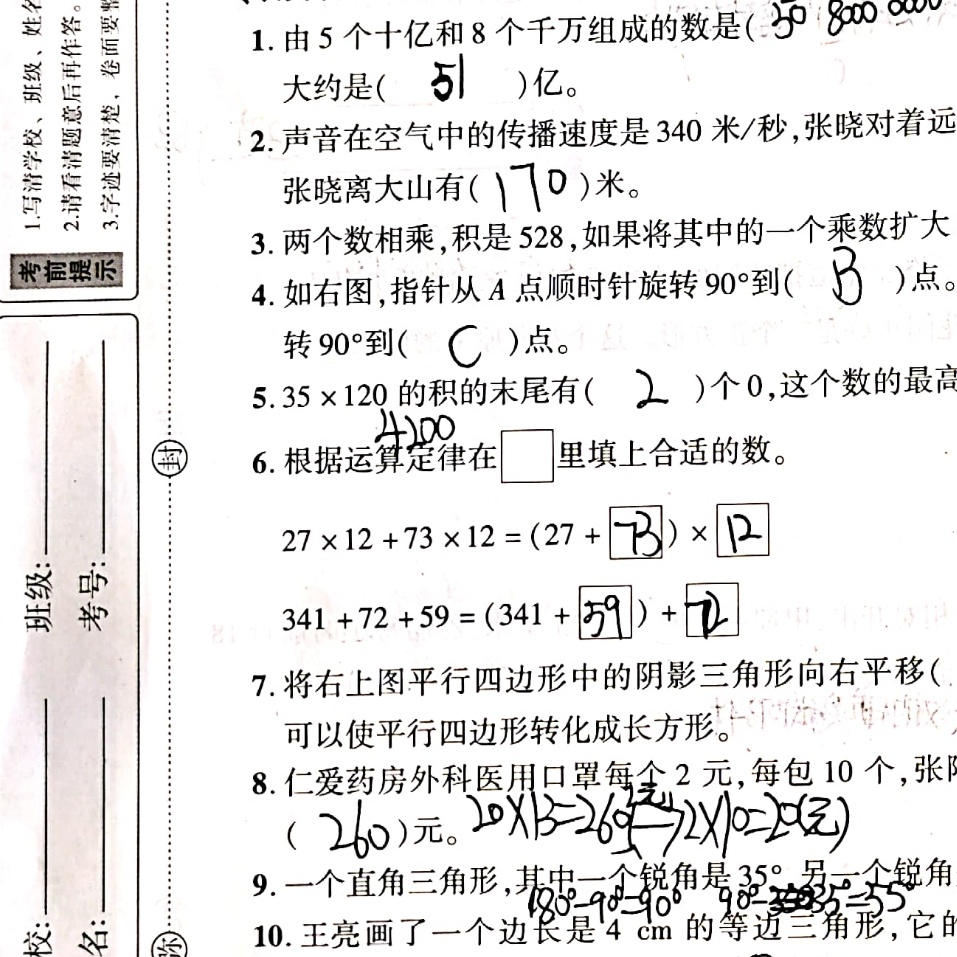 1.写清学校、班级、姓名
2.请看清题意后再作答。
3.字迹要清楚，卷面要整
考前提示
班级:
考号:
校:
名:
封
弥
1.由5个十亿和8个千万组成的数是( 50 8000 0000
大约是( 51 )亿。
2.声音在空气中的传播速度是340米/秒,张晓对着远
张晓离大山有( 170 )米。
3.两个数相乘,积是528,如果将其中的一个乘数扩大
4.如右图,指针从A点顺时针旋转90°到( B )点。
转90°到( C )点。
5.35×120的积的末尾有( 2 )个0,这个数的最高
4200
6.根据运算定律在□里填上合适的数。
27×12+73×12=(27+73)×12
341+72+59=(341+59)+72
7.将右上图平行四边形中的阴影三角形向右平移(
可以使平行四边形转化成长方形。
8.仁爱药房外科医用口罩每个2元,每包10个,张
( 260 )元。 20×13=260(元) 2×10=20(元)
9.一个直角三角形,其中一个锐角是35°,另一个锐角
180°-90°=90° 90°-35°=55°
10.王亮画了一个边长是4 cm的等边三角形,它的